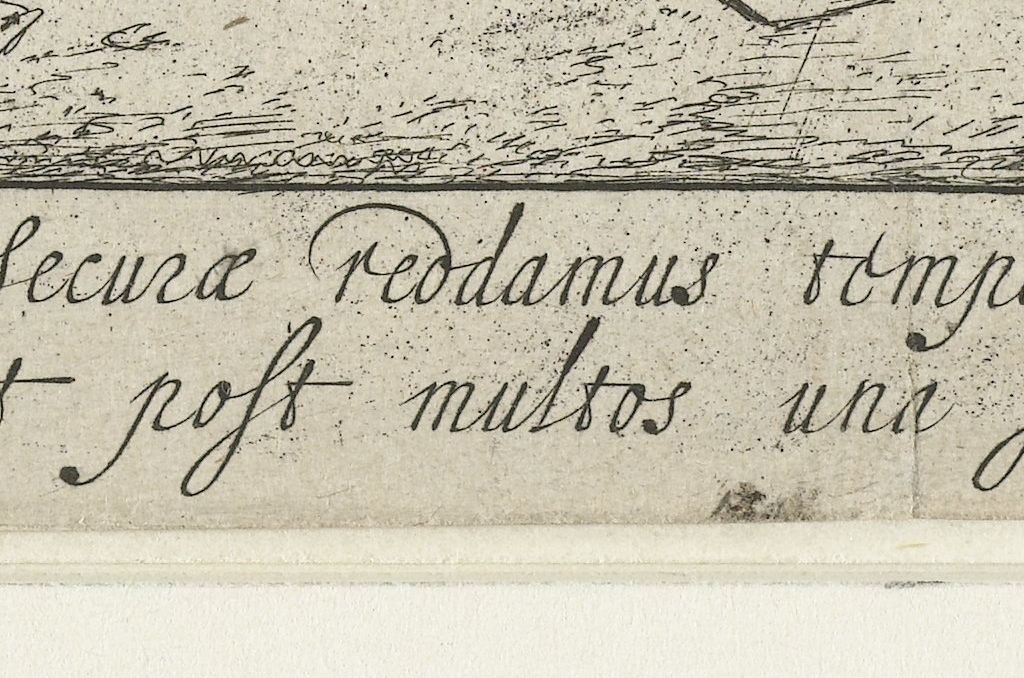 securæ reddamus temp
t post multos una